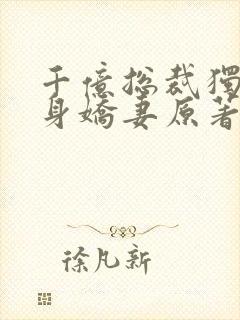 千億总裁獨
身嬌妻原著
徐凡新